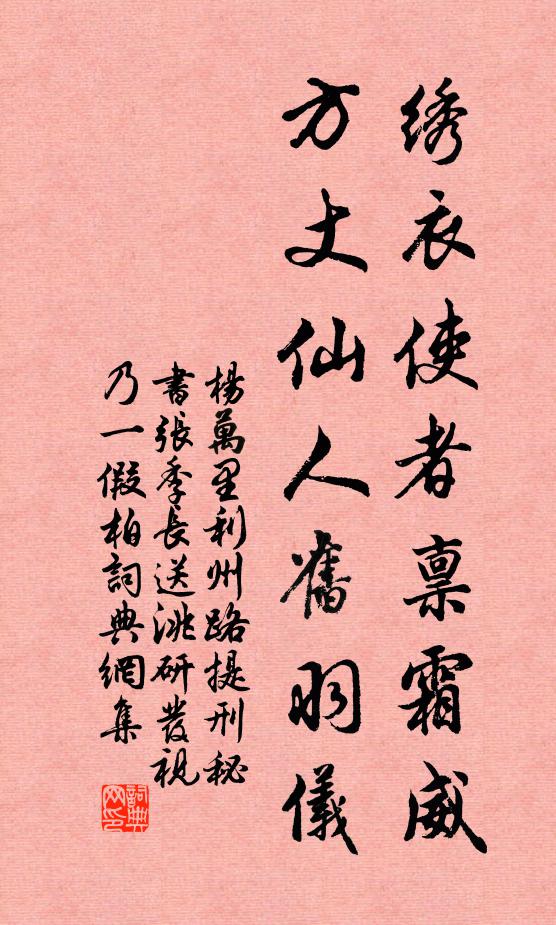 绣衣使者禀霜威
方丈仙人旧羽儀
楊萬里利州路提刑秘
書張季長送洮研發視
乃一假柏詞典網集
詞典网印